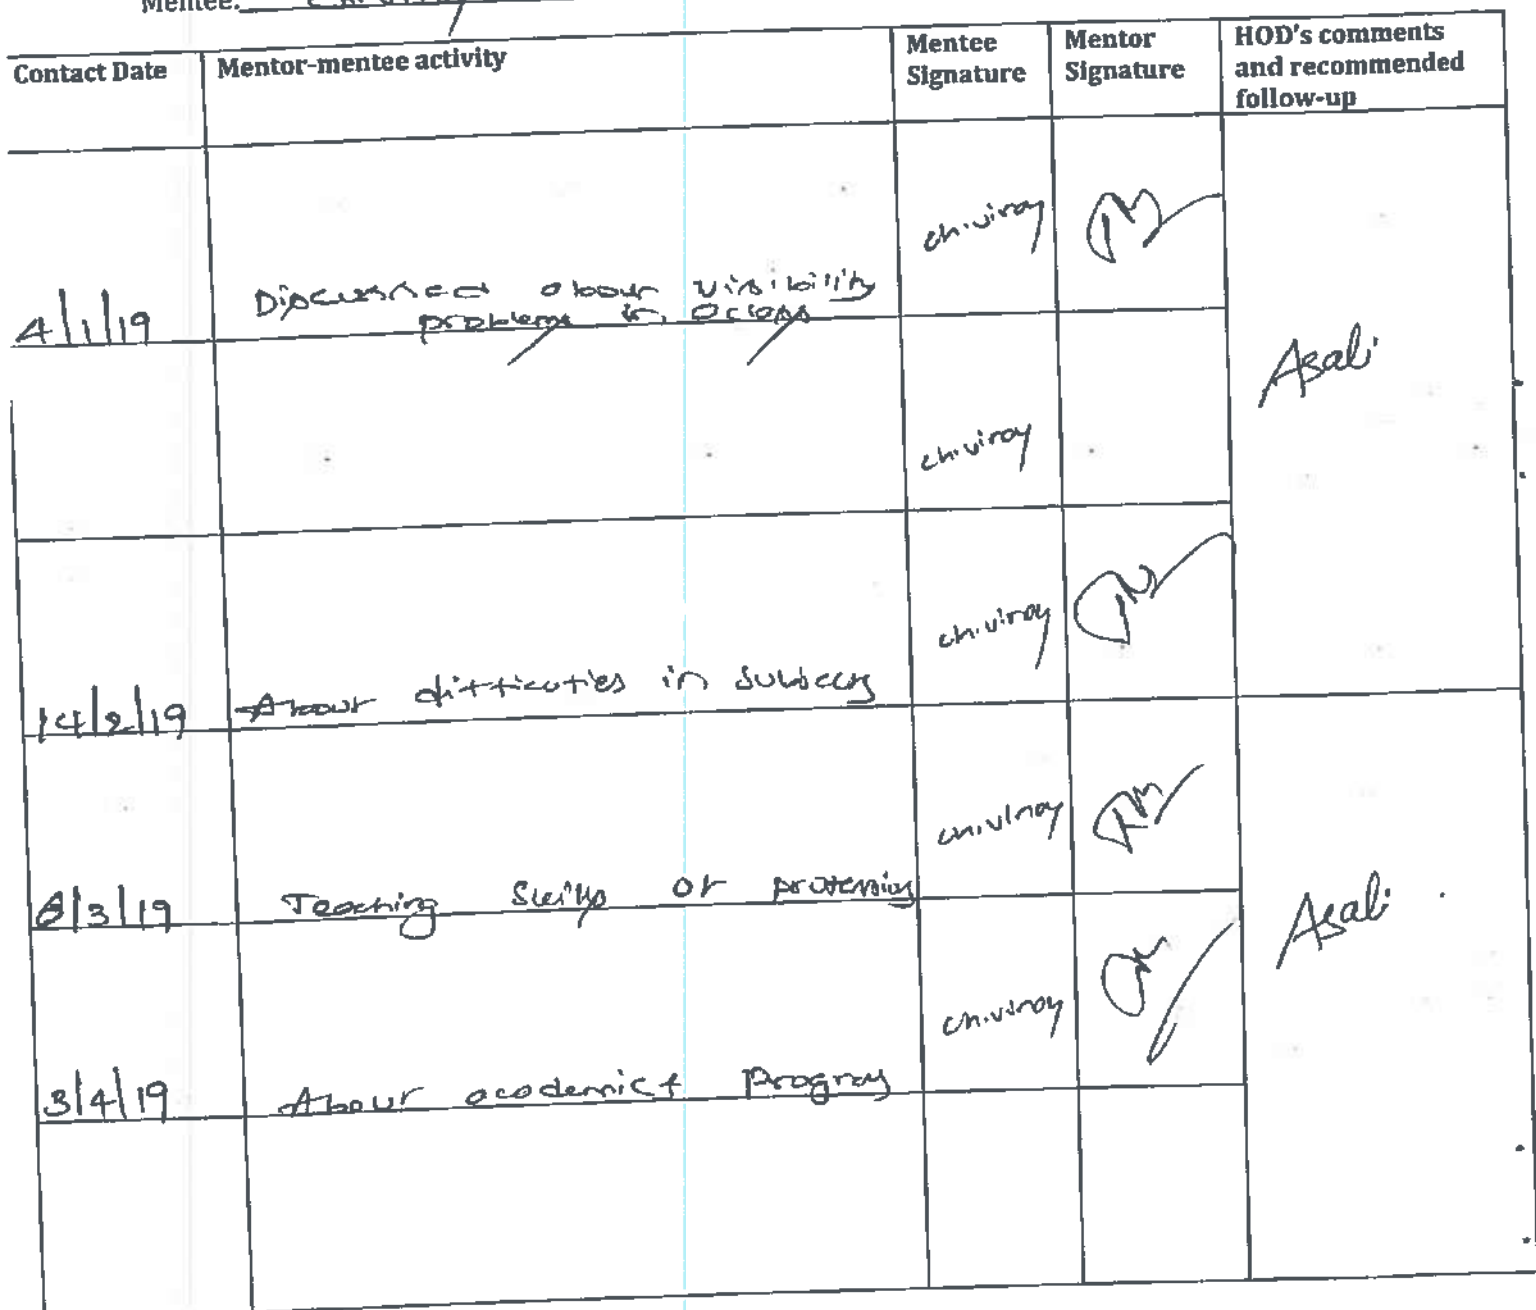 Mentee:
Contact Date Mentor-mentee activity Mentee Signature Mentor Signature HOD's comments and recommended follow-up
ch.viroy
4/1/19 Discussed about visibility
problems in class
Asali
ch.viroy
ch.viroy
14/2/19 About difficulties in subjects
ch.viroy
8/3/19 Teaching Skills of profession
Asali
ch.viroy
3/4/19 About academic Progress